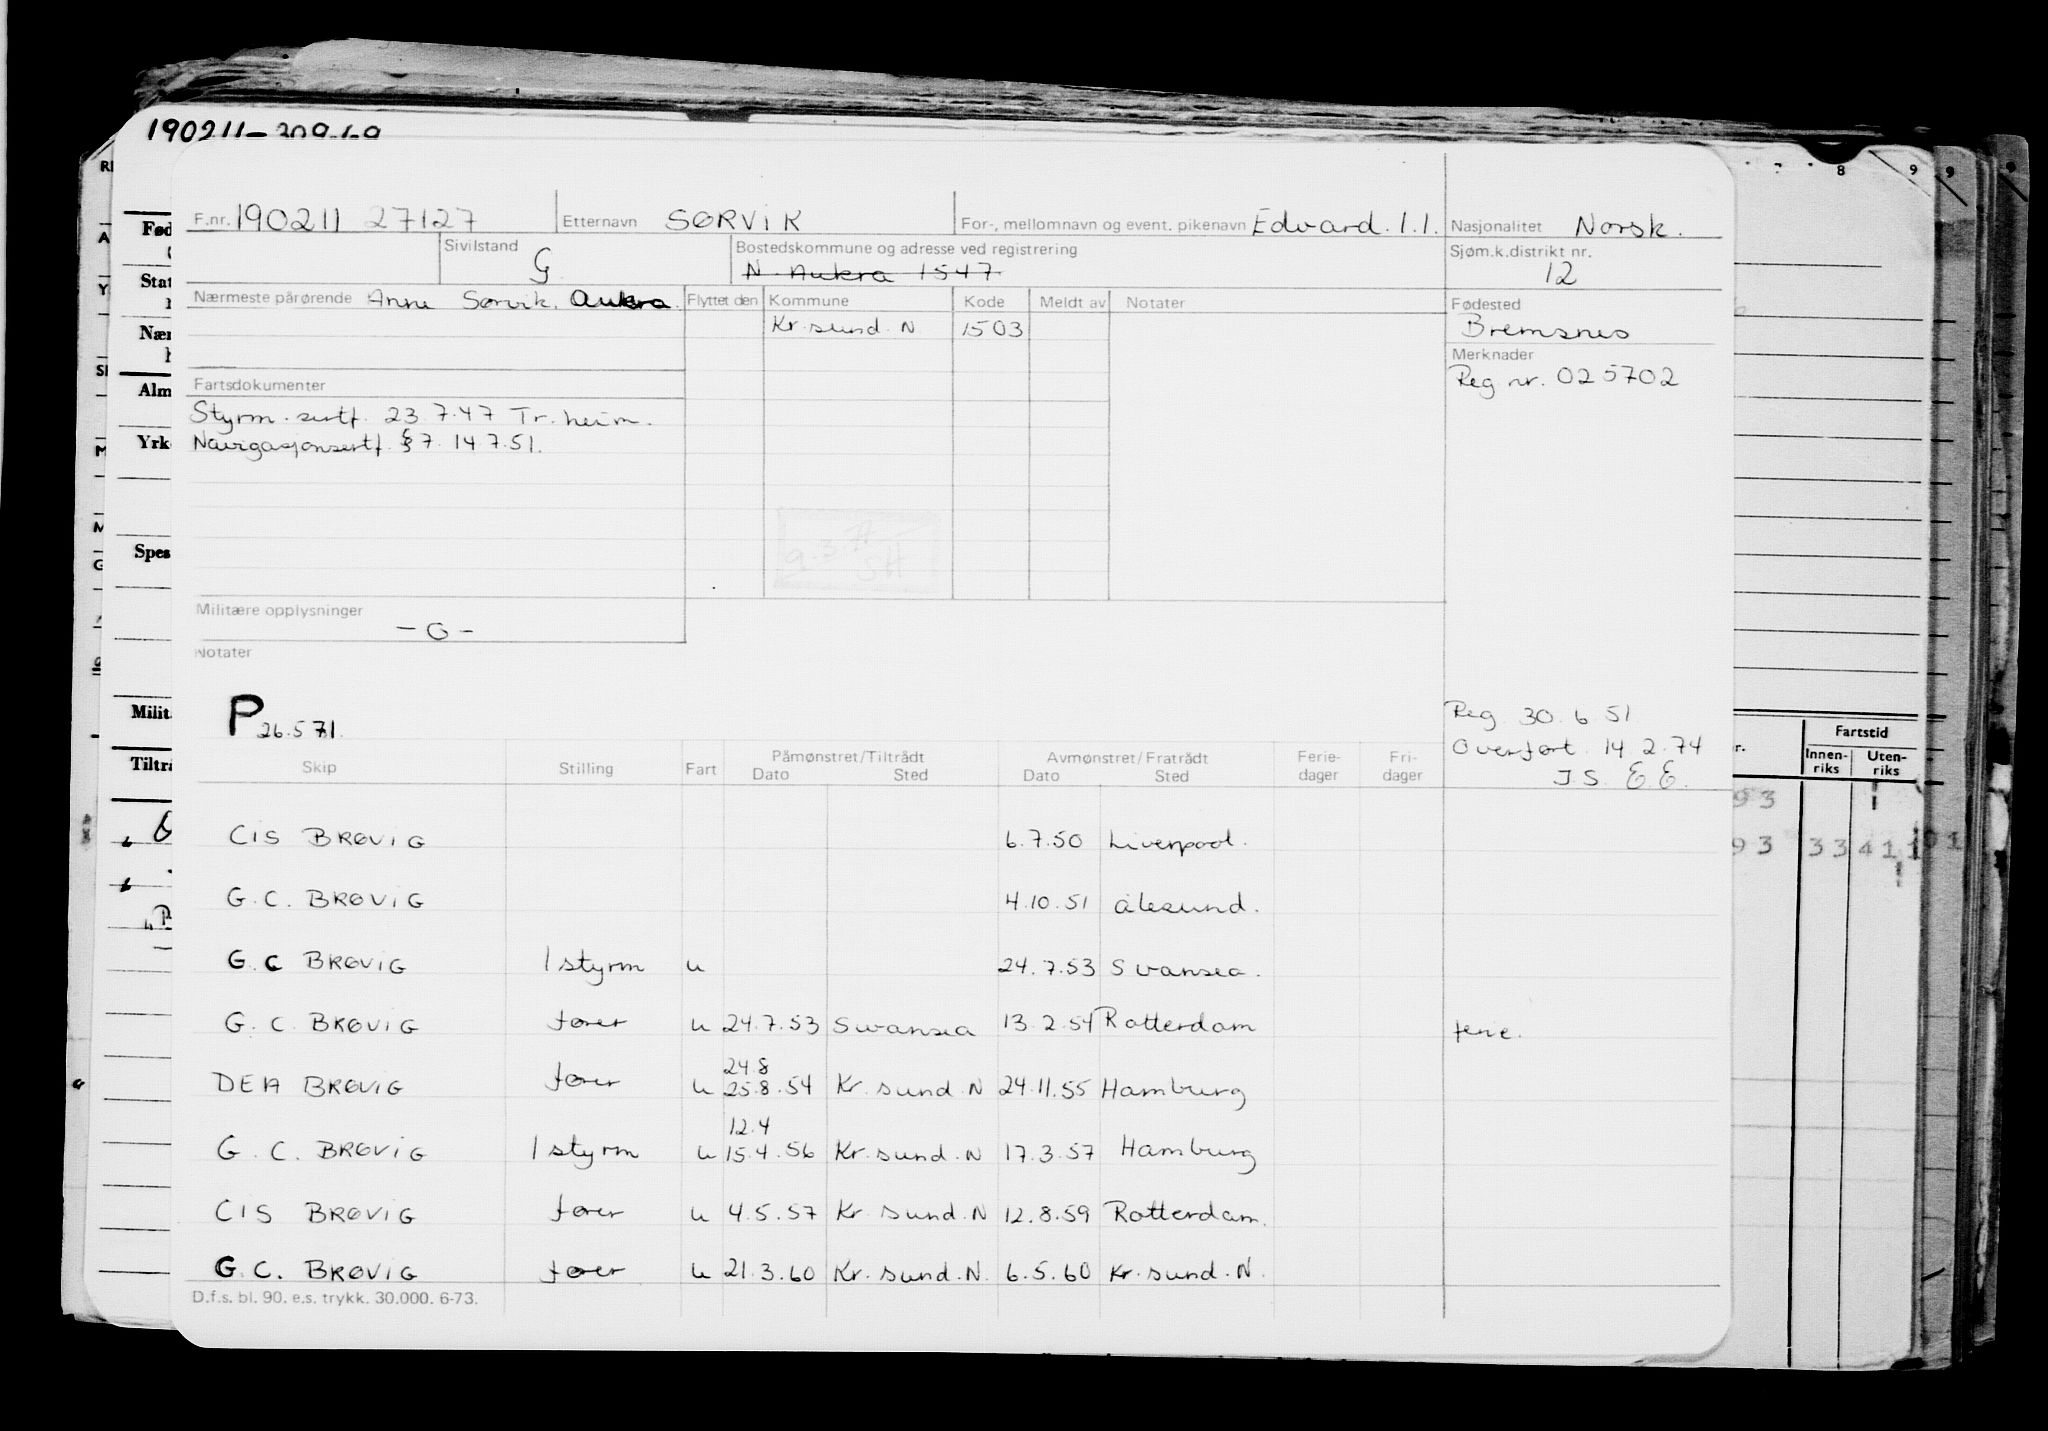 190211-
F.nr. 190211 27127 Etternavn SØRVIK For-, mellomnavn og event. pikenavn Edvard. I.I. Nasjonalitet Norsk.
Sivilstand G Bostedskommune og adresse ved registrering N. Aukra 1547 Sjøm.k.distrikt nr. 12
Nærmeste pårørende Anne Sørvik. Aukra. Flyttet den Kommune Kode Meldt av Notater Fødested
Kr.sund.N 1503 Bremsnes
Merknader
Reg. nr. 025702
Fartsdokumenter
Styrm.sertf. 23.7.47 Tr.heim.
Navigasjonsertf. §7. 14.7.51.
9.3 77
SH
Militære opplysninger
-0-
Notater
P 26.5.71.
Reg. 30.6.51
Overført. 14.2.74
J.S. E.E.
Skip Stilling Fart Påmønstret/Tiltrådt Dato Sted Avmønstret/Fratrådt Dato Sted Ferie-dager Fri-dager
CIS BRØVIG 6.7.50 Liverpool.
G.C. BRØVIG 4.10.51 Ålesund.
G.C BRØVIG 1 styrm u 24.7.53 Swansea.
G.C. BRØVIG fører u 24.7.53 Swansea 13.2.54 Rotterdam ferie.
24.8
DEA BRØVIG fører u 25.8.54 Kr.sund.N 24.11.55 Hamburg
12.4
G.C. BRØVIG 1 styrm u 15.4.56 Kr.sund.N 17.3.57 Hamburg
CIS BRØVIG fører u 4.5.57 Kr.sund.N 12.8.59 Rotterdam.
G.C. BRØVIG fører u 21.3.60 Kr.sund.N. 6.5.60 Kr.sund.N.
D.f.s. bl. 90. e.s. trykk. 30.000. 6-73.
8 9 9
Fartstid
Innen-riks Uten-riks
93
93 33 41